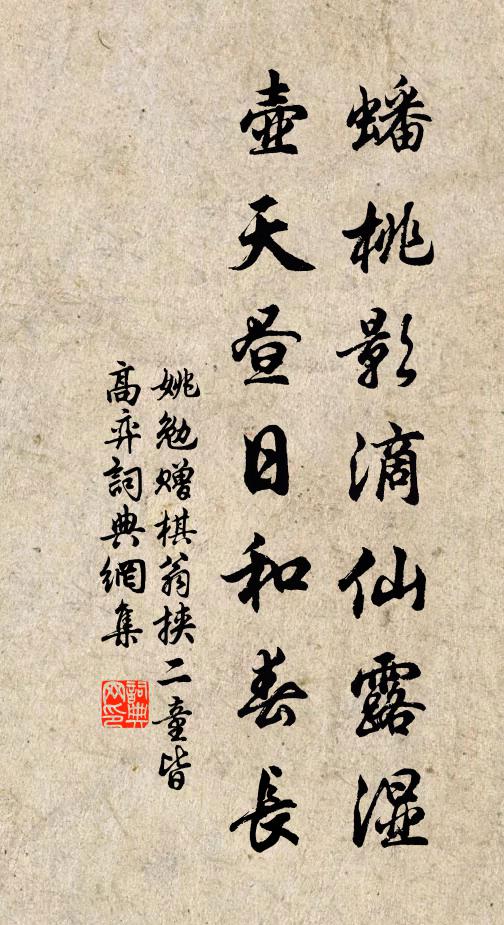 蟠桃影滴仙露湿
壶天昼日和春長
姚勉赠棋翁挟二童皆
高弈詞典網集
詞典网印